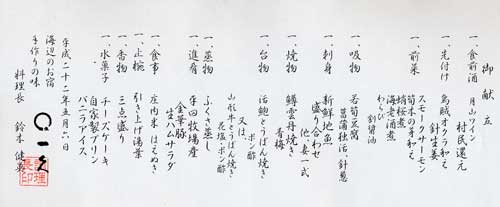 御献立
一、食前酒 月山ワイン
村民還元
一、先付け 烏賊オクラ和え
針生姜
一、前菜 スモークサーモン
筍木の芽和え
蛸桜煮
海老酒煮
わらび
割醤油
一、吸物 若筍豆腐
菖蒲独活 針葱
一、刺身 新鮮地魚
盛り合わせ
他、妻一式
一、焼物 鱒雲丹焼き
青梅
一、台物 活鮑とうばん焼き
ポン酢
又は、
山形牛とうばん焼き
花塩・ポン酢
一、蒸物 ふくさ蒸し
一、進肴 平田牧場産
金華豚
生ハムサラダ
一、食事 庄内米はえぬき
一、止椀 引き上げ湯葉
一、香物 三点盛り
一、水菓子 チーズケーキ
自家製プリン
バニラアイス
平成二十二年五月六日
海辺のお宿
手作りの味
一久
料理長 鈴木健